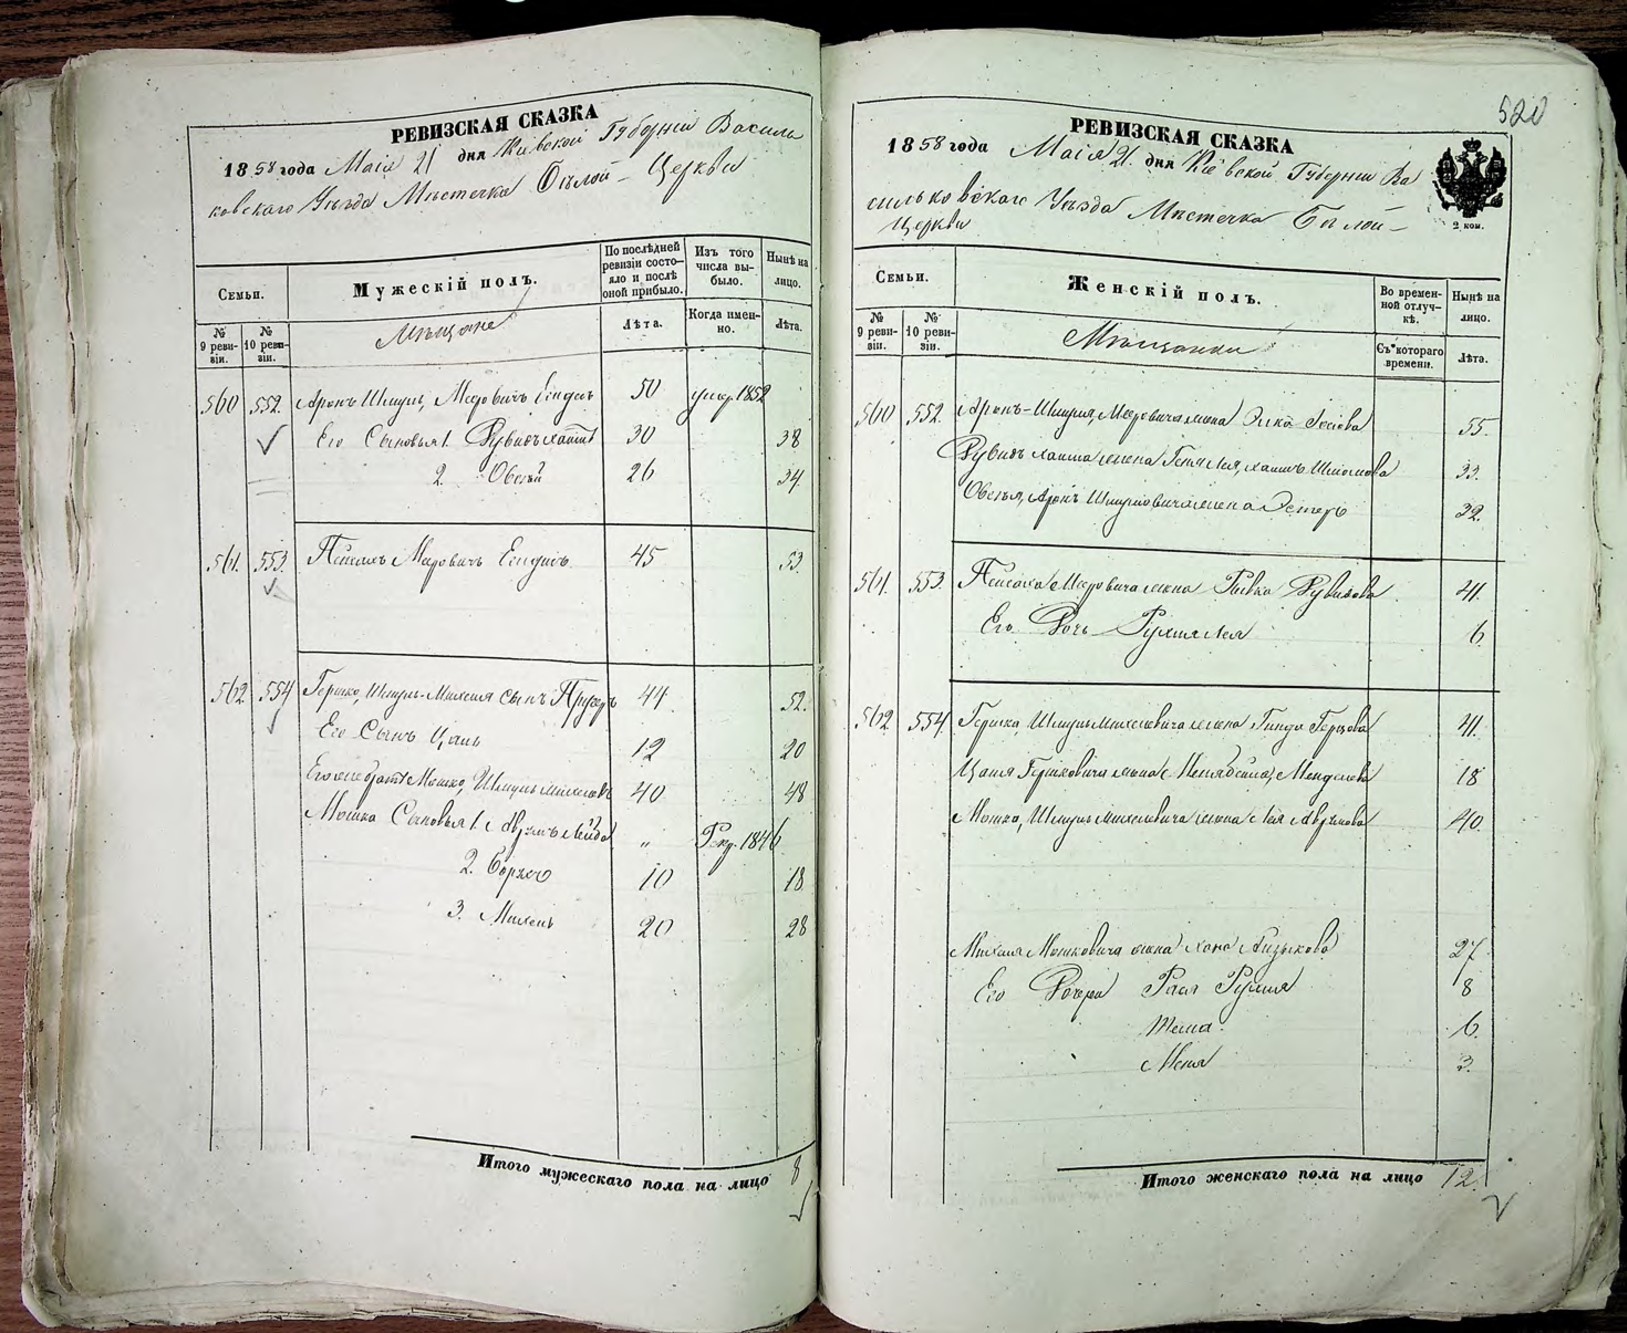 РЕВИЗСКАЯ СКАЗКА
1858 года Маія 21 дня Кіевской Губерніи Василь
ковскаго Уѣзда Мѣстечка Бѣлой-Церкви
Семьи.
№ 9 ревизіи.
№ 10 ревизіи.
Мужескій полъ.
Мѣщане
По послѣдней
ревизіи состо-
яло и послѣ
оной прибыло.
Лѣта.
Изъ того
числа вы-
было.
Когда имен-
но.
Нынѣ на
лицо.
Лѣта.
560 552. Аронъ Шмуль, Меровичъ 50 умер. 1852
Его Сыновья 1. Рувинъ Хаимъ 30 38
2. Овсѣй 26 34
561. 553. Пейсахъ Меровичъ 45 53.
562 554 Гершко, Шмуль-Михеля сынъ 44. 52.
Его Сынъ Цаль 12 20
Мошко, Шмуль Михелевъ 40 48
Мошка Сыновья 1. Аврумъ Лейба „ Рекр. 1846
2. Борухъ 10 18
3. Михель 20 28
Итого мужескаго пола на лицо 8
520
РЕВИЗСКАЯ СКАЗКА
1858 года Маія 21. дня Кіевской Губерніи Ва
сильковскаго Уѣзда Мѣстечка Бѣлой-
Церкви
2 коп.
Семьи.
№ 9 ревизіи.
№ 10 ревизіи.
Женскій полъ.
Мѣщанки
Во времен-
ной отлуч-
кѣ.
Съ котораго
времени.
Нынѣ на
лицо.
Лѣта.
560 552. Аронъ-Шмуля, Меровича жена 55.
Рувинъ Хаима жена Геня Лея, Хаимъ Шлiомова 33.
Овсѣя, Аронъ Шмулiовича жена Эстеръ 32.
561. 553. Пейсаха Меровича жена Ривка Рувинова 41.
Его Дочь Рухля Лея 6
562. 554. Гершка, Шмуль Михелевича жена Гинда Герцова 41.
Цаля Гершковича жена Менделева 18
Мошко, Шмуль Михелевича жена Лея Аврумова 40.
Михеля Мошковича жена Хана Айзыкова 27.
Его Дочери Рася Рухля 8
6.
Меня 3.
Итого женскаго пола на лицо 12.